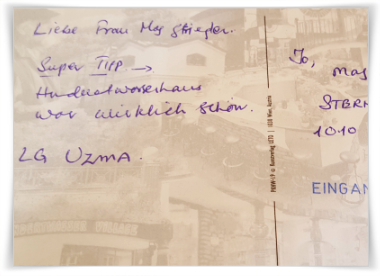 Liebe Frau Mag Stiegler.
Super Tipp. →
Hundertwasserhaus
war wirklich schön.
LG UZMA.
To, Mag
STERN
1010
EINGAN